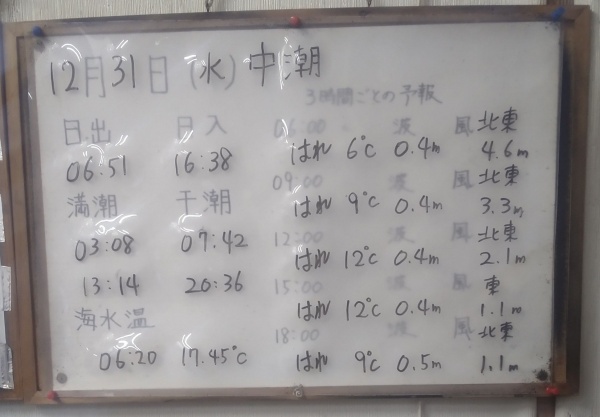 12月31日 (水) 中潮
3時間ごとの予報
日出 日入
06:51 16:38
満潮 干潮
03:08 07:42
13:14 20:36
海水温
06:20 17.45℃
06:00 波 風 北東
はれ 6℃ 0.4m 4.6m
09:00 波 風 北東
はれ 9℃ 0.4m 3.3m
12:00 波 風 北東
はれ 12℃ 0.4m 2.1m
15:00 波 風 東
はれ 12℃ 0.4m 1.1m
18:00 波 風 北東
はれ 9℃ 0.5m 1.1m